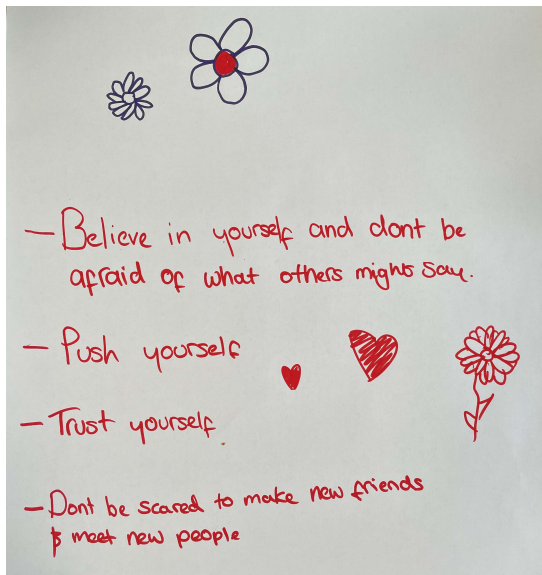 - Believe in yourself and dont be
afraid of what others might say.
- Push yourself
- Trust yourself
- Dont be scared to make new friends
& meet new people